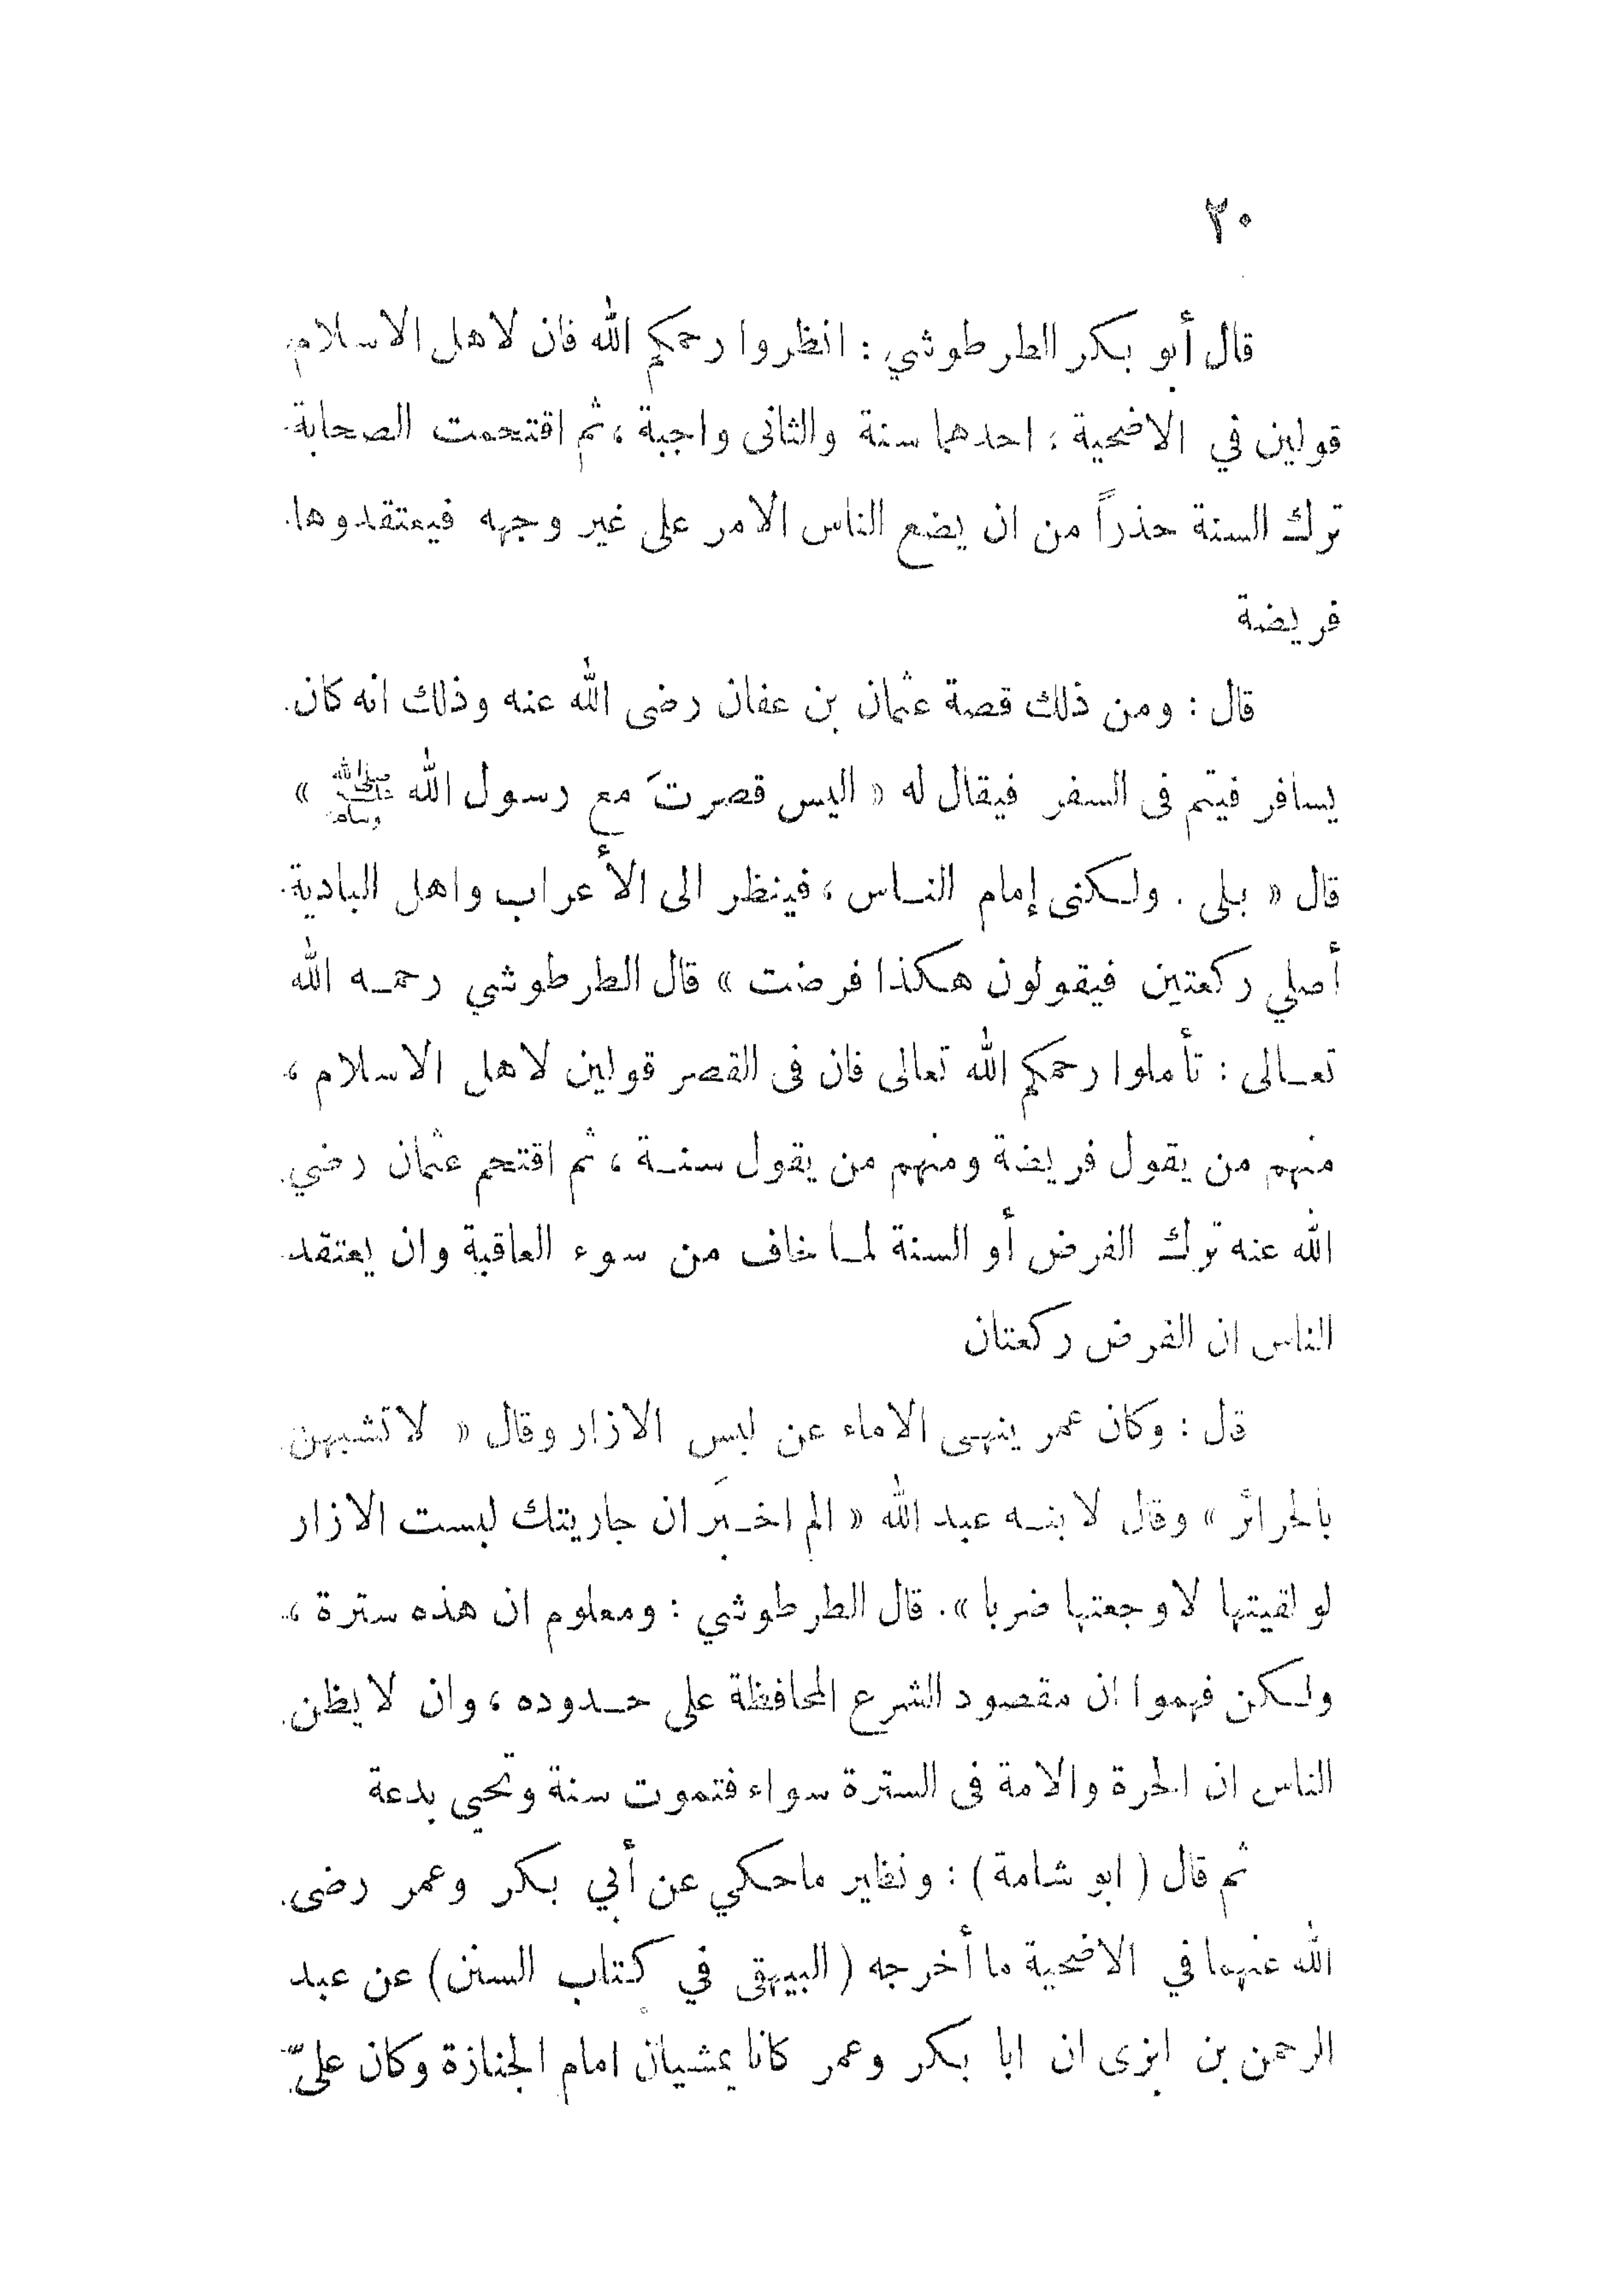 ٢٠
قال أبو بكر الطرطوشي : انظروا رحمكم الله فان لاهل الاسلام
قولين في الاضحية : احدهما سنة والثانى واجبة ، ثم اقتحمت الصحابة
ترك السنة حذراً من ان يضع الناس الامر على غير وجهه فيعتقدوها
فريضة
قال : ومن ذلك قصة عثمان بن عفان رضى الله عنه وذلك انه كان
يسافر فيتم فى السفر فيقال له « اليس قصرتَ مع رسول الله ﷺ »
قال « بلى . ولكنى إمام الناس ، فينظر الى الأعراب واهل البادية
أصلي ركعتين فيقولون هكذا فرضت » قال الطرطوشي رحمه الله
تعالى : تأملوا رحمكم الله تعالى فان فى القصر قولين لاهل الاسلام ،
منهم من يقول فريضة ومنهم من يقول سنة ، ثم اقتحم عثمان رضي
الله عنه ترك الفرض أو السنة لما خاف من سوء العاقبة وان يعتقد
الناس ان الفرض ركعتان
قال : وكان عمر ينهى الاماء عن لبس الازار وقال « لا تشبهن
بالحرائر » وقال لابنه عبد الله « الم اخبَر ان جاريتك لبست الازار
لو لقيتها لاوجعتها ضربا » . قال الطرطوشي : ومعلوم ان هذه سترة ،
ولكن فهموا ان مقصود الشرع المحافظة على حدوده ، وان لا يظن
الناس ان الحرة والامة فى السترة سواء فتموت سنة وتحيي بدعة
ثم قال ( ابو شامة ) : ونظير ماحكي عن أبي بكر وعمر رضى
الله عنهما في الاضحية ما أخرجه ( البيهقى في كتاب السنن ) عن عبد
الرحمن بن ابزى ان ابا بكر وعمر كانا يمشيان امام الجنازة وكان علىّ